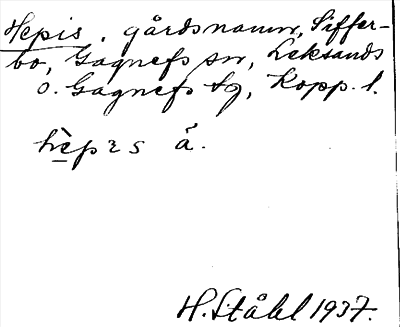 Hepis, gårdsnamn, Siffer-
bo, Gagnefs sn, Leksands
o. Gagnefs tg, Kopp. l.
hèpɩs å.
H. Ståhl 1937.